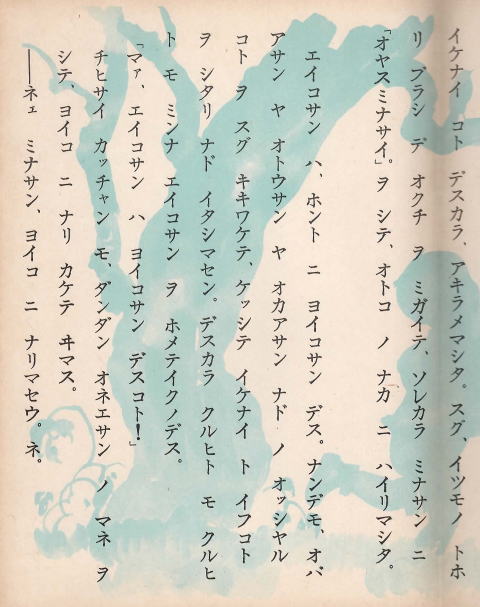 イケナイ コト デスカラ、アキラメマシタ。スグ、イツモノ トホ
リ ブラシ デ オクチ ヲ ミガイテ、ソレカラ ミナサン ニ
「オヤスミナサイ」。ヲ シテ、オトコ ノ ナカ ニ ハイリマシタ。
エイコサン ハ、ホント ニ ヨイコサン デス。ナンデモ、オバ
アサン ヤ オトウサン ヤ オカアサン ナド ノ オッシヤル
コト ヲ スグ キキワケテ、ケッシテ イケナイ ト イフコト
ヲ シタリ ナド イタシマセン。デスカラ クルヒト モ クルヒ
ト モ ミンナ エイコサン ヲ ホメテイクノデス。
「マァ、エイコサン ハ ヨイコサン デスコト!」
チヒサイ カッチャン モ、ダンダン オネエサン ノ マネ ヲ
シテ、ヨイコ ニ ナリ カケテ ヰマス。
――ネェ ミナサン、ヨイコ ニ ナリマセウ。ネ。